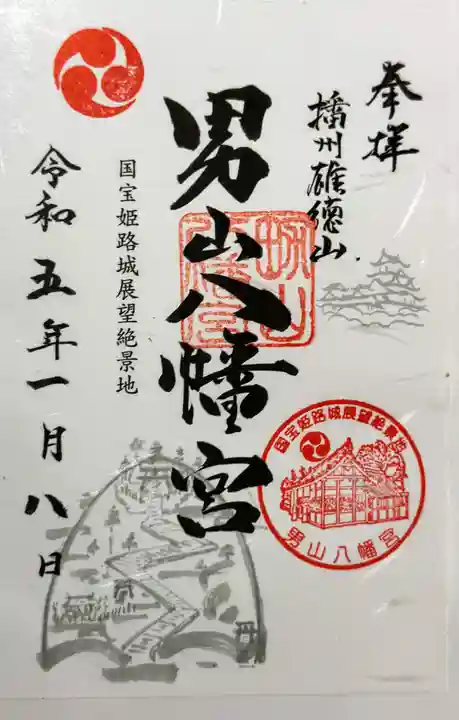 奉拝
播州雄徳山
男山八幡宮
国宝姫路城展望絶景地
令和五年一月八日
国宝姫路城展望絶景地
男山八幡宮